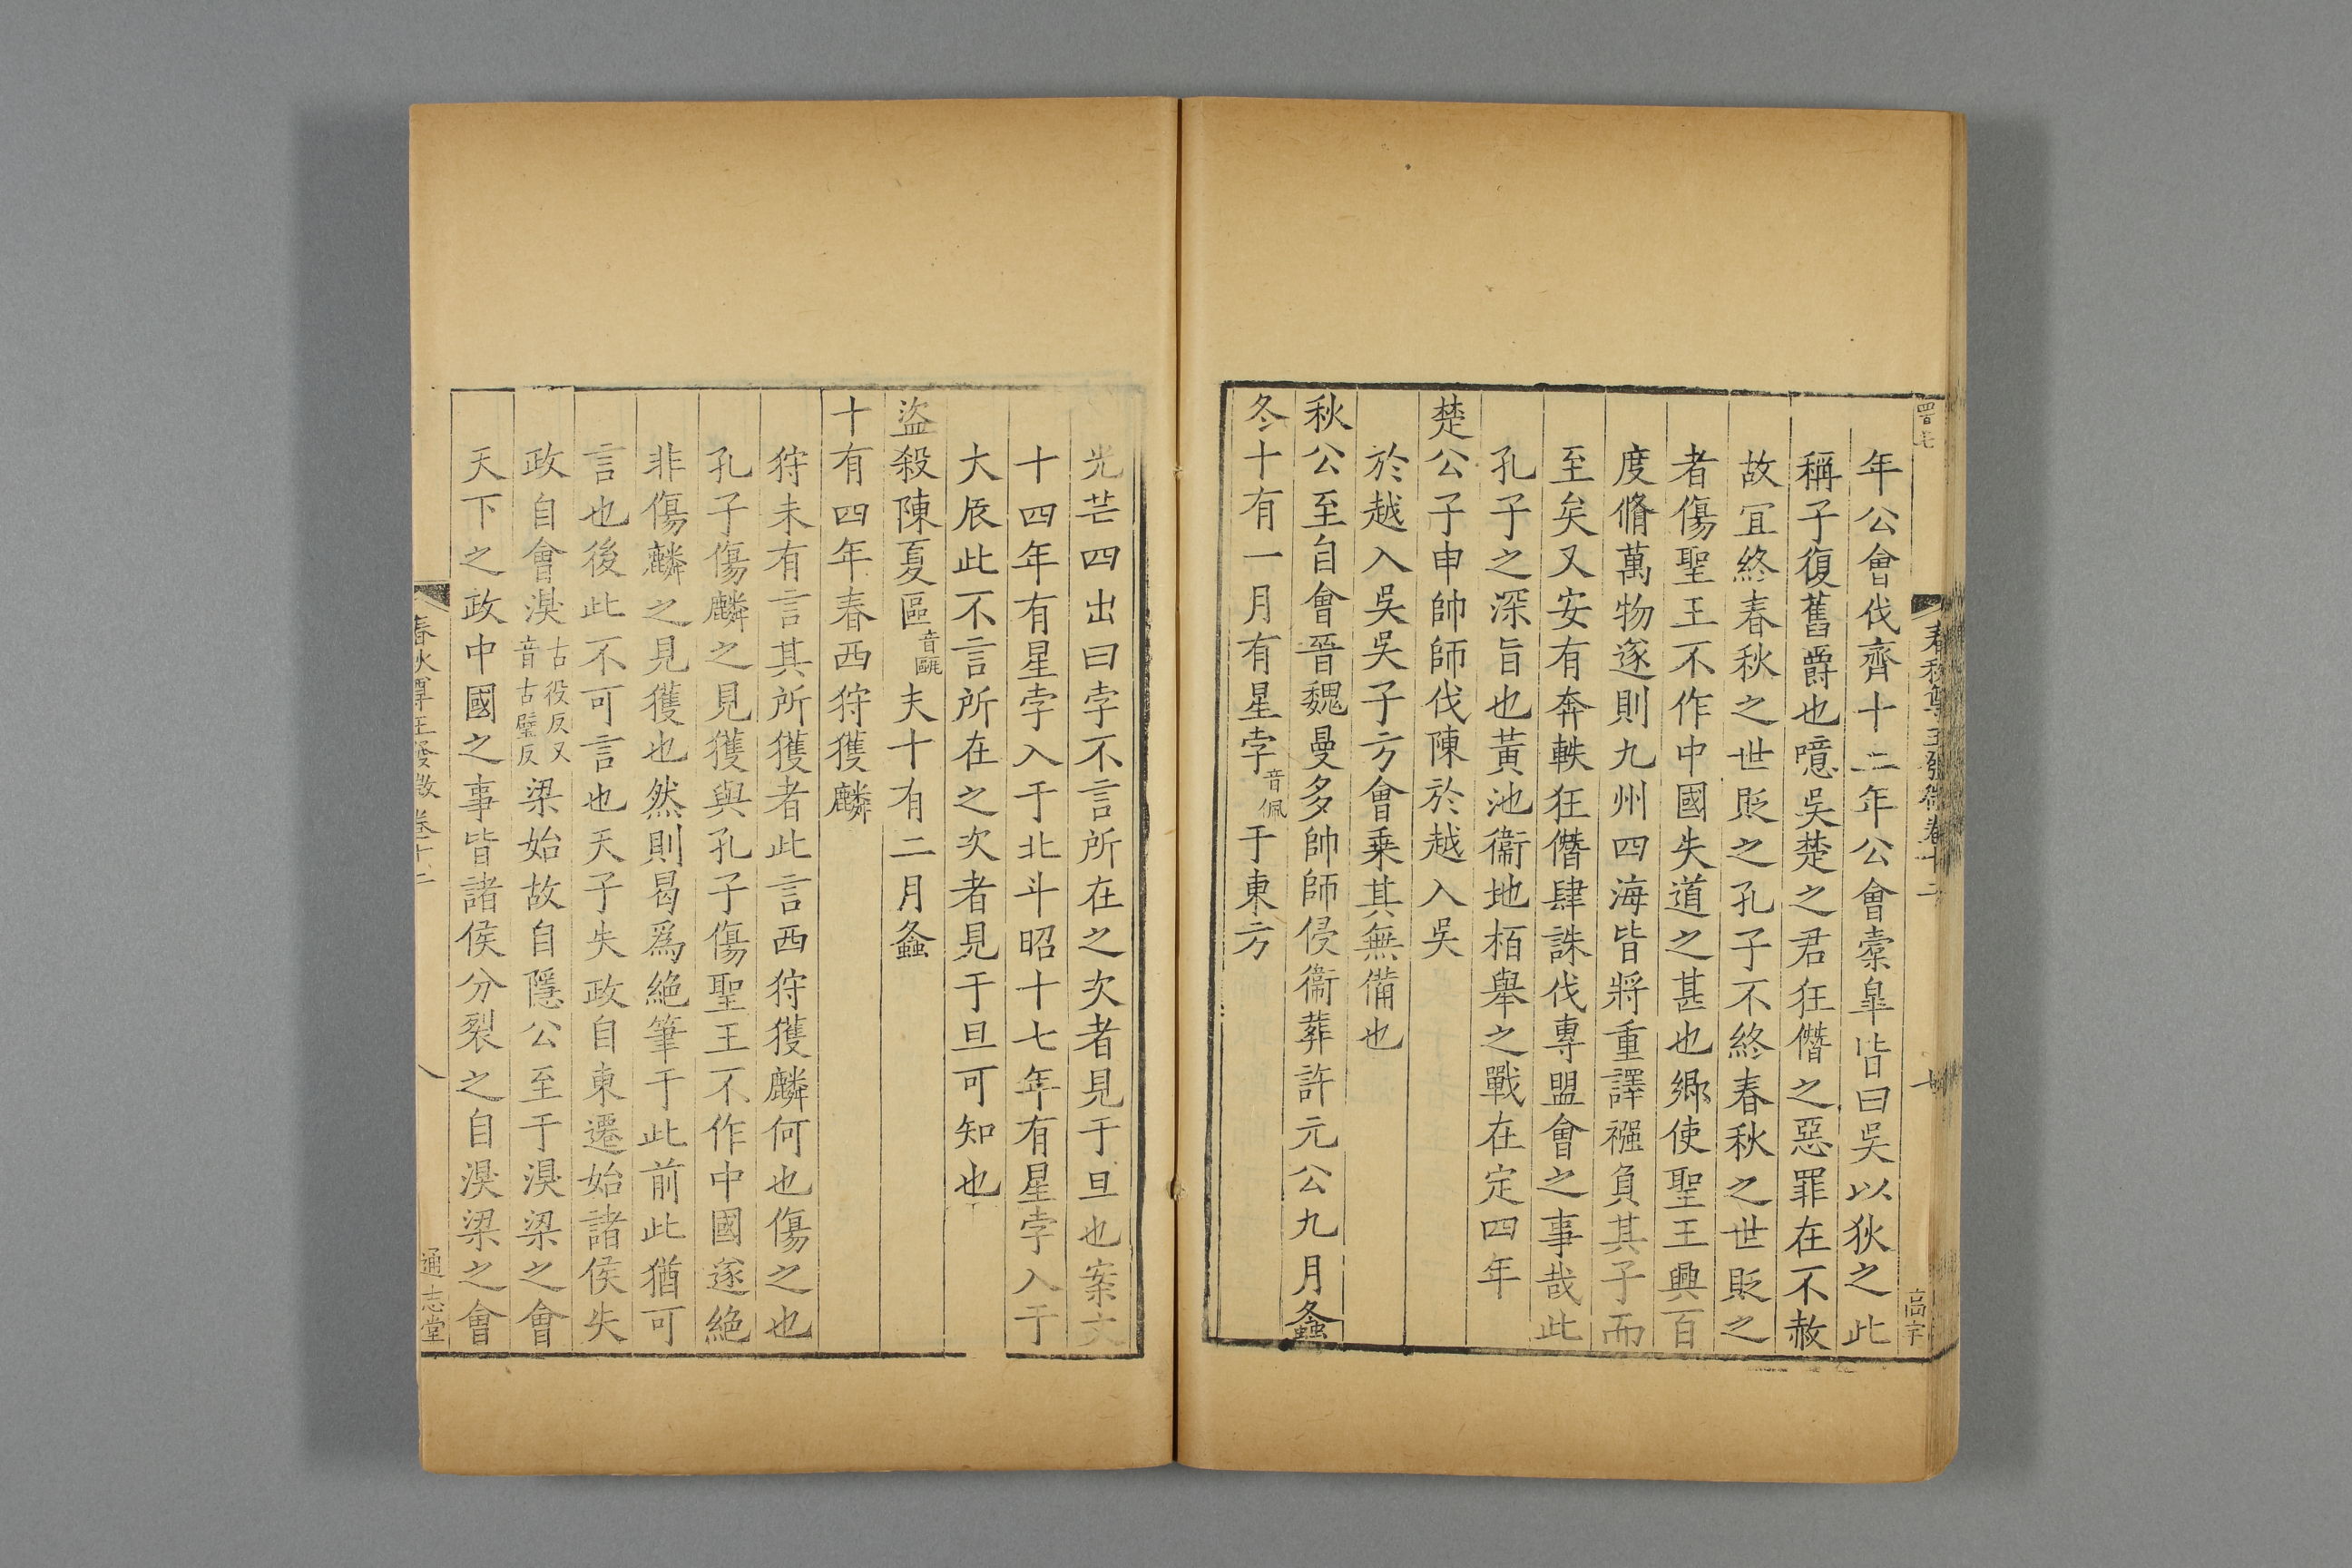 年公會伐齊十二年公會橐臯皆曰吳以狄之此
稱子復舊爵也噫吳楚之君狂僭之惡罪在不赦
故冝終春秋之世貶之孔子不終春秋之世貶之
者傷聖王不作中國失道之甚也鄉使聖王興百
度脩萬物遂則九州四海皆將重譯襁負其子而
至矣又安有奔軼狂僭肆誅伐專盟會之事哉此
孔子之深旨也黃池衞地栢舉之戰在定四年
楚公子申帥師伐陳於越入吳
於越入吳吳子方會乗其無備也
秋公至自會晉魏曼多帥師侵衞葬許元公九月螽
冬十有一月有星孛音佩于東方
光芒四出曰孛不言所在之次者見于旦也案文
十四年有星孛入于北斗昭十七年有星孛入于
大辰此不言所在之次者見于旦可知也
盜殺陳夏區音甌夫十有二月螽
十有四年春西狩獲麟
狩未有言其所獲者此言西狩獲麟何也傷之也
孔子傷麟之見獲與孔子傷聖王不作中國遂絕
非傷麟之見獲也然則曷爲絕筆于此前此猶可
言也後此不可言也天子失政自東遷始諸侯失
政自會湨古役反又音古璧反梁始故自隱公至于湨梁之會
天下之政中國之事皆諸侯分裂之自湨梁之會
春秋尊王發微卷十二
通志堂
春秋尊王發微卷十二
高字